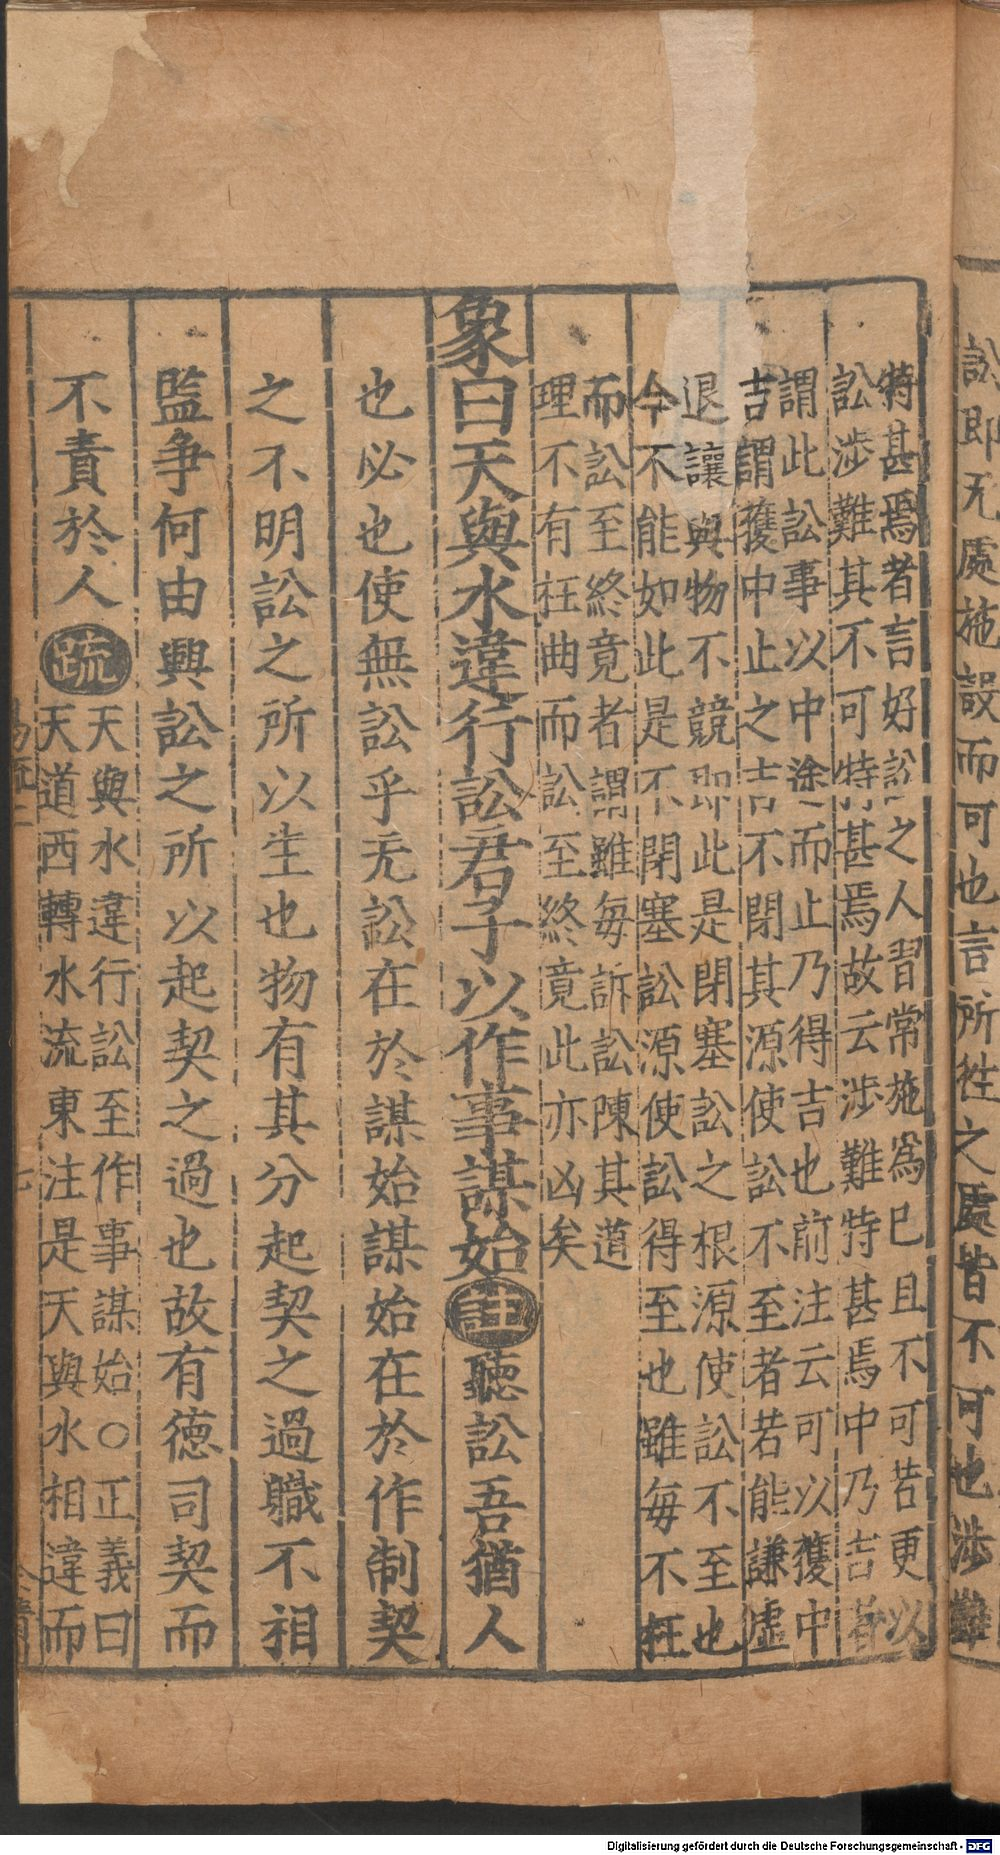 訟即无處施設而可也言所徃之處皆不可也涉難
特甚焉者言好訟之人習常施為巳且不可若更以
訟涉難其不可特甚焉故云涉難特甚焉中乃吉者
謂此訟事以中途而止乃得吉也前注云可以獲中
吉謂獲中止之吉不閉其源使訟不至者若能謙虛
退讓與物不競即此是閉塞訟之根源使訟不至也
今不能如此是不閉塞訟源使訟得至也雖每不枉
而訟至終竟者謂雖每訴訟陳其道
理不有枉曲而訟至終竟此亦凶矣
象曰天與水違行訟君子以作事謀始註聽訟吾猶人
也必也使無訟乎无訟在於謀始謀始在於作制契
之不明訟之所以生也物有其分起契之過職不相
監争何由興訟之所以起契之過也故有德司契而
不責於人疏
天與水違行訟至作事謀始○正義曰
天道西轉水流東注是天與水相違而
Digitalisierung gefördert durch die Deutsche Forschungsgemeinschaft - DFG